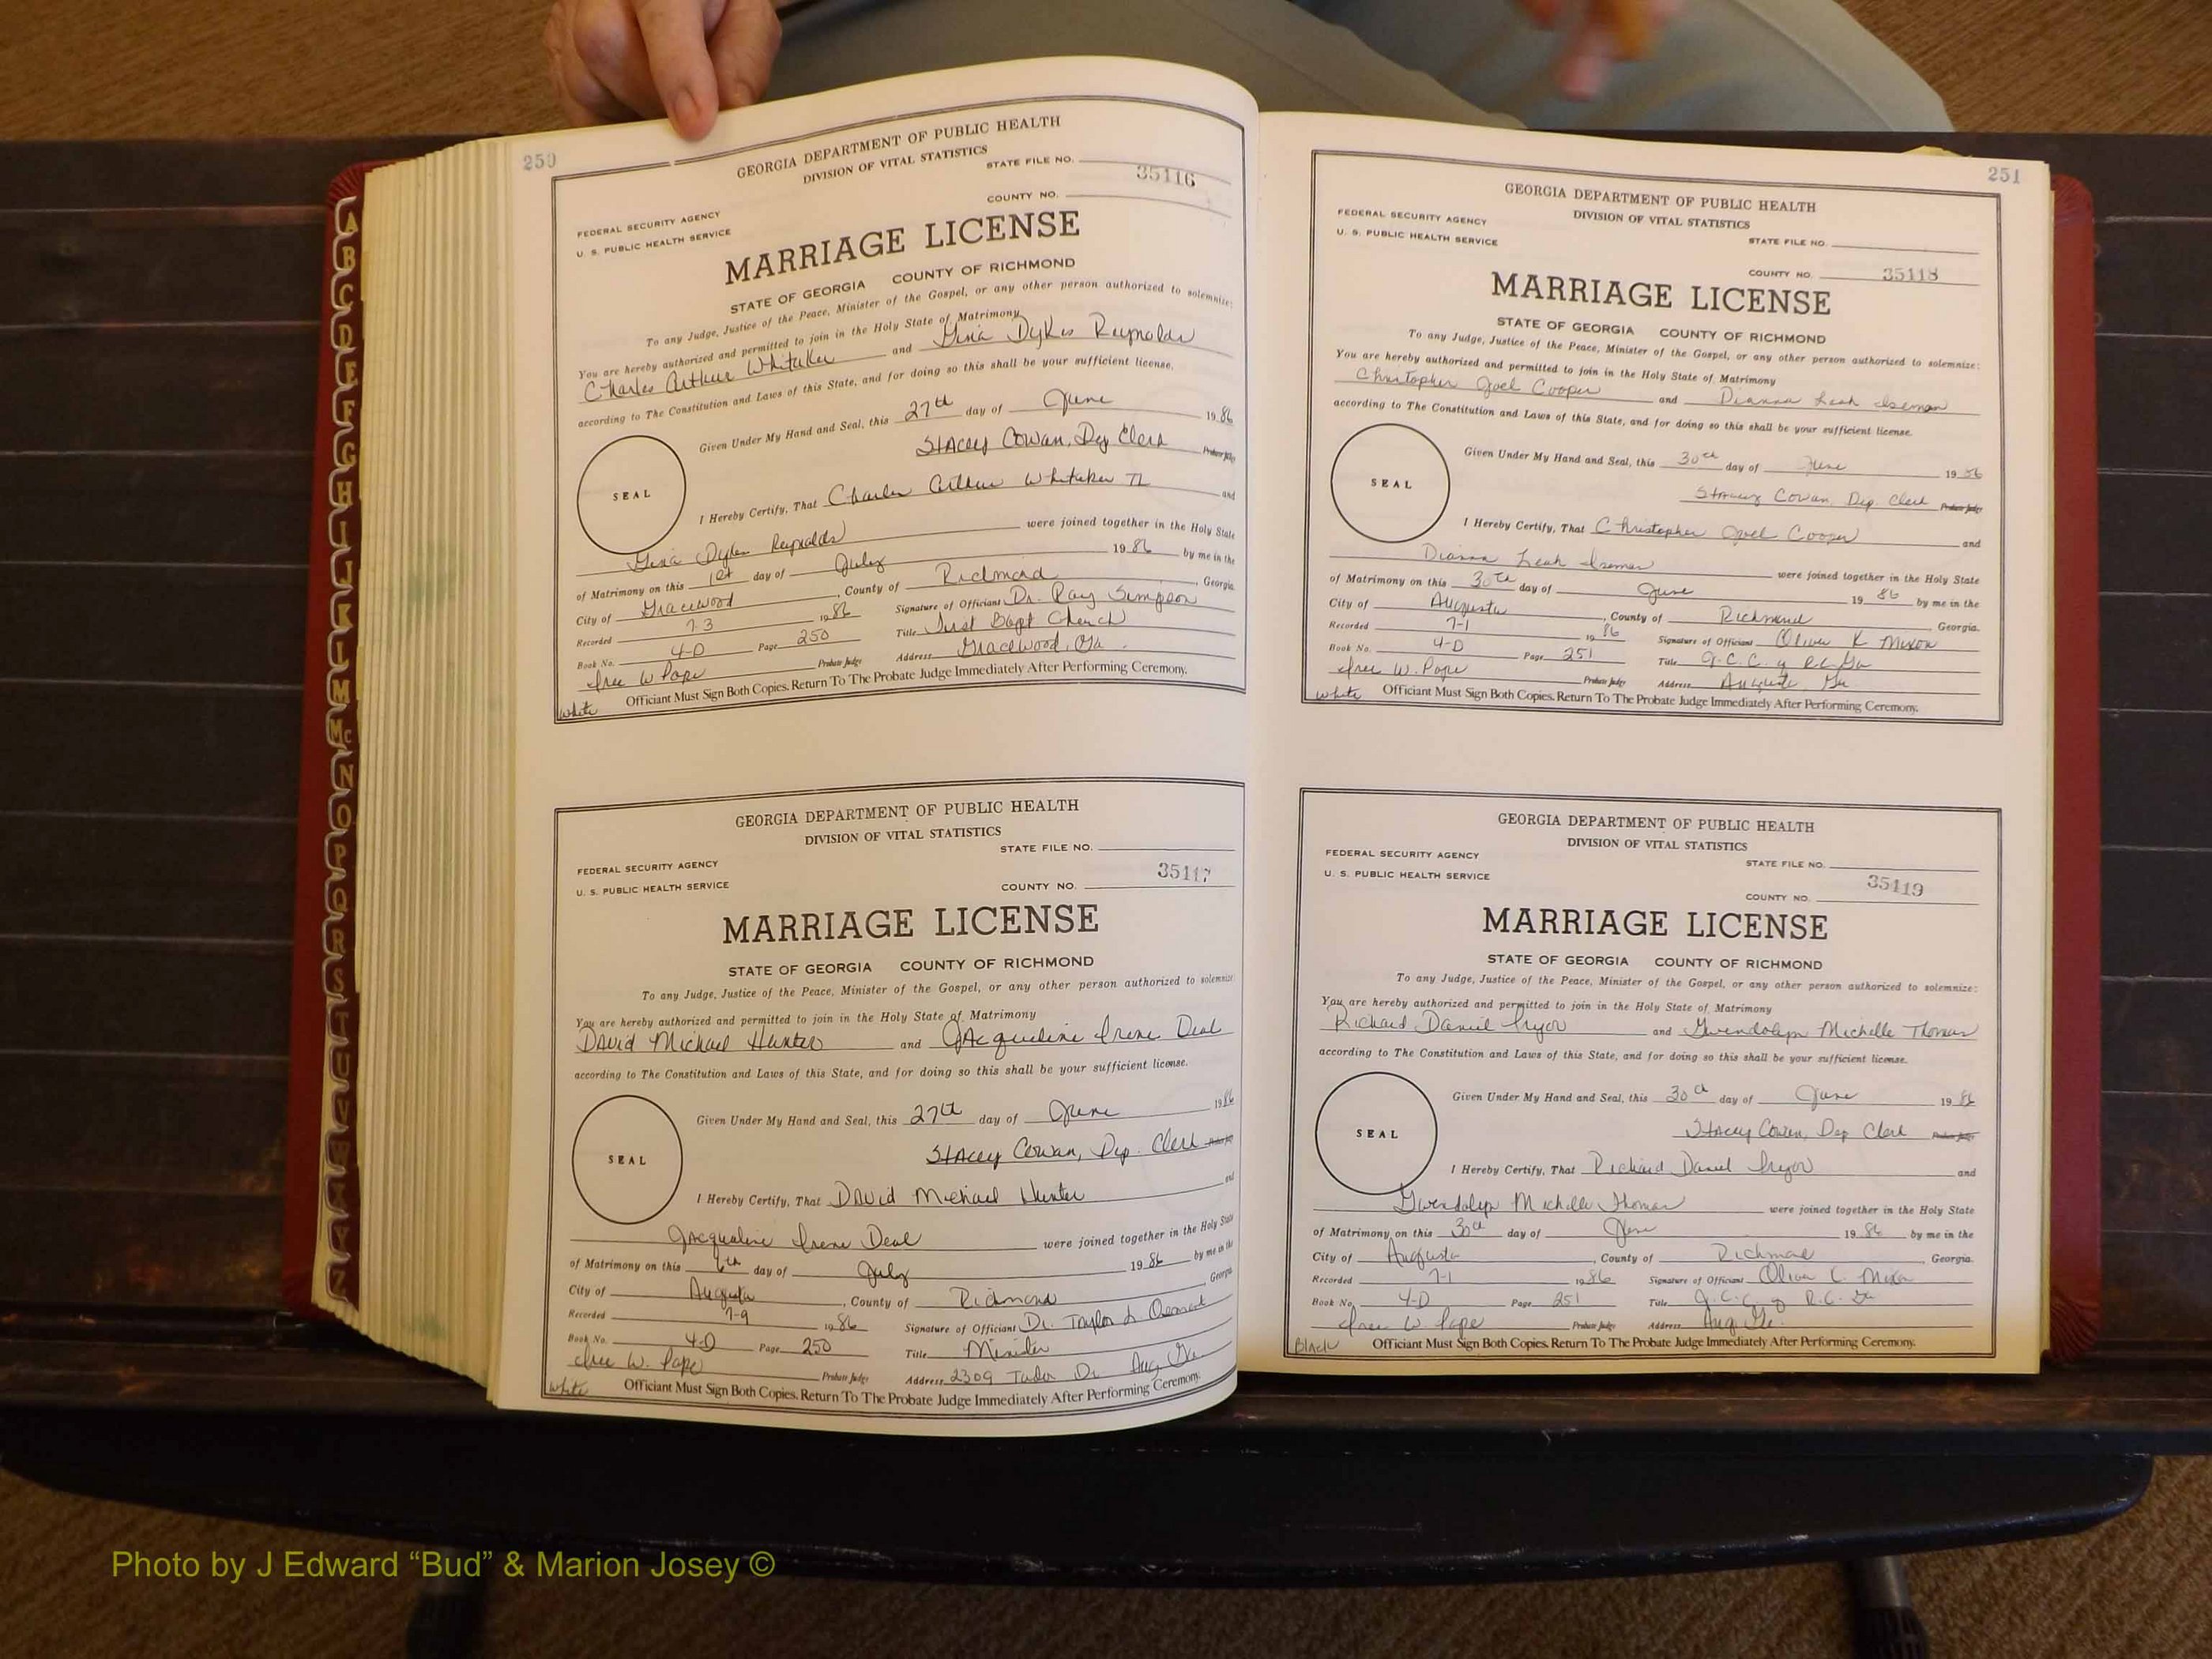 250
GEORGIA DEPARTMENT OF PUBLIC HEALTH
DIVISION OF VITAL STATISTICS
STATE FILE NO.
35116
COUNTY NO.
FEDERAL SECURITY AGENCY
U. S. PUBLIC HEALTH SERVICE
MARRIAGE LICENSE
STATE OF GEORGIA COUNTY OF RICHMOND
To any Judge, Justice of the Peace, Minister of the Gospel, or any other person authorized to solemnize:
You are hereby authorized and permitted to join in the Holy State of Matrimony
Charles Arthur Whitaker and Gina Dykes Reynolds
according to The Constitution and Laws of this State, and for doing so this shall be your sufficient license.
Given Under My Hand and Seal, this 27th day of June 1986
Stacey Cowan, Dep Clerk Probate Judge
SEAL
I Hereby Certify, That Charles Arthur Whitaker and
Gina Dykes Reynolds were joined together in the Holy State
of Matrimony on this 1st day of July 1986 by me in the
City of Gracewood, County of Richmond, Georgia
Recorded 7-3 1986 Signature of Officiant Dr. Ray Simpson
Book No. 4-D Page 250 Title First Bapt Church
Iree W Pope Probate Judge Address Gracewood, Ga.
White Officiant Must Sign Both Copies. Return To The Probate Judge Immediately After Performing Ceremony.
GEORGIA DEPARTMENT OF PUBLIC HEALTH
DIVISION OF VITAL STATISTICS
STATE FILE NO.
FEDERAL SECURITY AGENCY
35117
U. S. PUBLIC HEALTH SERVICE
COUNTY NO.
MARRIAGE LICENSE
STATE OF GEORGIA COUNTY OF RICHMOND
To any Judge, Justice of the Peace, Minister of the Gospel, or any other person authorized to solemnize:
You are hereby authorized and permitted to join in the Holy State of Matrimony
David Michael Hunter and Jacqueline Irene Deal
according to The Constitution and Laws of this State, and for doing so this shall be your sufficient license.
Given Under My Hand and Seal, this 27th day of June 1986
Stacey Cowan, Dep. Clerk Probate Judge
SEAL
I Hereby Certify, That David Michael Hunter and
Jacqueline Irene Deal were joined together in the Holy State
of Matrimony on this 6th day of July 1986 by me in the
City of Augusta, County of Richmond, Georgia
Recorded 7-9 1986 Signature of Officiant Dr. Taylor L
Book No. 4-D Page 250 Title Minister
Iree W. Pope Probate Judge Address 2309 Tudor Dr. Aug Ga.
White Officiant Must Sign Both Copies. Return To The Probate Judge Immediately After Performing Ceremony.
251
GEORGIA DEPARTMENT OF PUBLIC HEALTH
DIVISION OF VITAL STATISTICS
FEDERAL SECURITY AGENCY
U. S. PUBLIC HEALTH SERVICE
STATE FILE NO.
COUNTY NO. 35118
MARRIAGE LICENSE
STATE OF GEORGIA COUNTY OF RICHMOND
To any Judge, Justice of the Peace, Minister of the Gospel, or any other person authorized to solemnize:
You are hereby authorized and permitted to join in the Holy State of Matrimony
Christopher Joel Cooper and Dianna Leah Iseman
according to The Constitution and Laws of this State, and for doing so this shall be your sufficient license.
Given Under My Hand and Seal, this 30th day of June 1986
Stacey Cowan, Dep. Clerk Probate Judge
SEAL
I Hereby Certify, That Christopher Joel Cooper and
Dianna Leah Iseman were joined together in the Holy State
of Matrimony on this 30th day of June 1986 by me in the
City of Augusta, County of Richmond Georgia.
Recorded 7-1 1986 Signature of Officiant Oliver K Mixon
Book No. 4-D Page 251 Title J.C.C. of R.C. Ga
Iree W. Pope Probate Judge Address Augusta, Ga
White Officiant Must Sign Both Copies. Return To The Probate Judge Immediately After Performing Ceremony.
GEORGIA DEPARTMENT OF PUBLIC HEALTH
DIVISION OF VITAL STATISTICS
FEDERAL SECURITY AGENCY
STATE FILE NO.
U. S. PUBLIC HEALTH SERVICE
35119
COUNTY NO.
MARRIAGE LICENSE
STATE OF GEORGIA COUNTY OF RICHMOND
To any Judge, Justice of the Peace, Minister of the Gospel, or any other person authorized to solemnize:
You are hereby authorized and permitted to join in the Holy State of Matrimony
Richard Daniel Pryor and Gwendolyn Michelle Thomas
according to The Constitution and Laws of this State, and for doing so this shall be your sufficient license.
Given Under My Hand and Seal, this 30th day of June 1986
Stacey Cowan, Dep Clerk Probate Judge
SEAL
I Hereby Certify, That Richard Daniel Pryor and
Gwendolyn Michelle Thomas were joined together in the Holy State
of Matrimony on this 30th day of June 1986 by me in the
City of Augusta, County of Richmond, Georgia.
Recorded 7-1 1986 Signature of Officiant Oliver K. Mixon
Book No. 4-D Page 251 Title J.C.C. of R.C. Ga
Iree W. Pope Probate Judge Address Aug Ga.
Black Officiant Must Sign Both Copies. Return To The Probate Judge Immediately After Performing Ceremony.
A
B
C
D
E
F
G
H
I
J
K
L
M
Mc
N
O
P
Q
R
S
T
U
V
W
X
Y
Z
Photo by J Edward “Bud” & Marion Josey ©